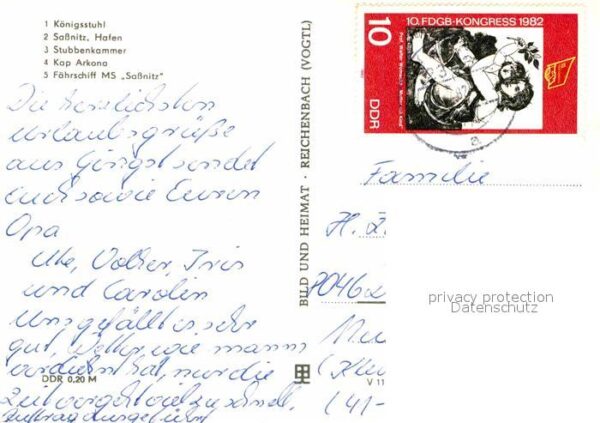 1 Königsstuhl
2 Saßnitz, Hafen
3 Stubbenkammer
4 Kap Arkona
5 Fährschiff MS „Saßnitz"
Die herzlichsten
Urlaubsgrüße
aus Gingst sendet
Euch sowie Eurem
Opa
Ute, Volker, Iris
und Carolin
Uns gefällt es sehr
gut, Wetter, wie mann's
verdient hat, nur die
Zeit vergeht viel zu schnell.
DDR 0,20 M
BILD UND HEIMAT · REICHENBACH (VOGTL)
V 11
10. FDGB-KONGRESS 1982
10
DDR
Familie
H. Z.
(41-
privacy protection
Datenschutz